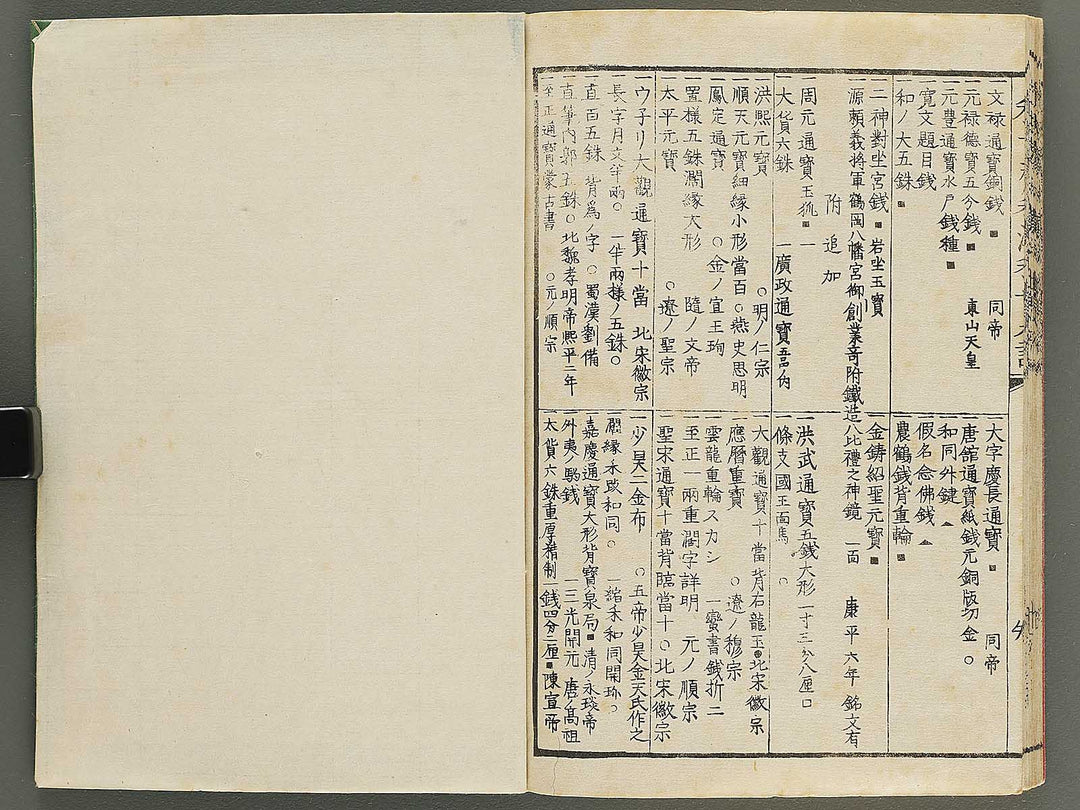 一文禄通寳銅銭 ■ 同帝
一元禄德寳五分銭 ■ 東山天皇
一元豊通寳水戸銭種 ■
一寛文題目銭
一和ノ大五銖 ■
一二神對坐宮銭 ■ 岩坐玉寳
源頼義将軍鶴岡八幡宮御創業奇附鐵造八比禮之神鏡 一面 康平六年 銘文有
附追加
一周元通寳玉狐 ■
一大貨六銖 一廣政通寳
一洪熙元寳 ○明ノ仁宗
一順天元寳細縁小形當百○燕史思明
一鳳定通寳 ○金ノ宣王珣
一置様五銖濶縁大形 隨ノ文帝
一太平元寳 ○遼ノ聖宗
一ウ子リ大觀通寳十當 北宋徽宗
一長字月文半兩○ 一半兩様ノ五銖○
一直百五銖 背為ノ字 ○蜀漢劉備
一直筆内郭五銖○北魏孝明帝熙平二年
一至正通寳蒙古書 ○元ノ順宗
一大字慶長通寳 ■ 同帝
一唐館通寳紙銭元銅版切金○
一和同外鍵 ▲
一假名念佛銭 ▲
一農鶴銭背重輪 ■
一金鋳紹聖元寳 ■
一洪武通寳五銭大形 一寸三分八厘□
一條支國王面馬 ○
一大觀通寳十當背右龍玉●北宋徽宗
一應暦重寳 ○遼ノ穆宗
一雲龍重輪スカシ 一蛮書銭折二
一至正一兩重濶字詳明 元ノ順宗
一聖宋通寳十當背臨當十○北宋徽宗
一少昊二金布 ○五帝少昊金天氏作之
一濶縁禾跛和同○ 一縮禾和同開珎○
一嘉慶通寳大形背寳泉局■清ノ永琰帝
一外夷ノ駒銭 一三光開元 唐ノ高祖
一大貨六銖重厚精制一銭四分二厘■陳宣帝